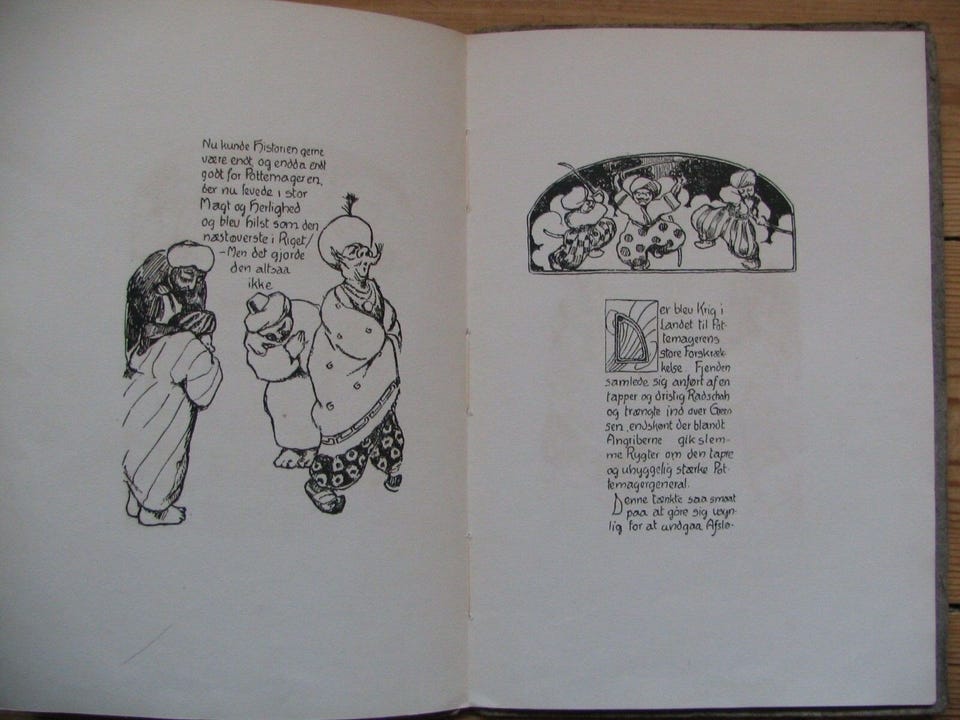 Nu kunde Historien gerne
være endt, og endda endt
godt for Pottemageren,
der nu levede i stor
Magt og Herlighed
og blev hilst som den
næstøverste i Riget/
-Men det gjorde
den altsaa
ikke
Der blev Krig i
Landet til Pot-
temagerens
store Forskræk-
kelse. Fjenden
samlede sig anført af en
tapper og dristig Radschah
og trængte ind over Græn-
sen, endskønt der blandt
Angriberne gik slem-
me Rygter om den tapre
og uhyggelig stærke Pot-
temagergeneral.
Denne tænkte saa smaat
paa at göre sig usyn-
lig for at undgaa Afslø-